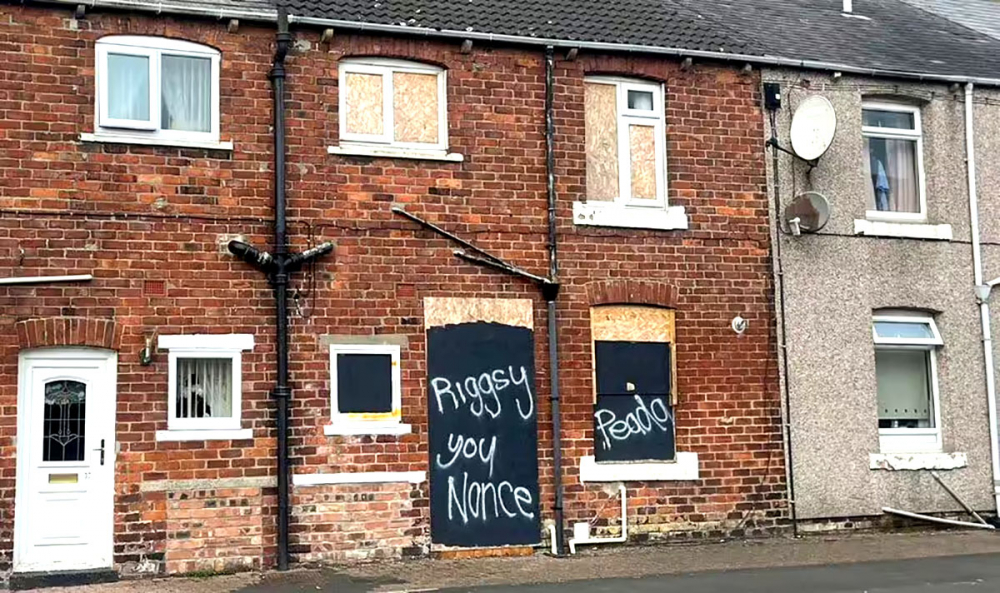 Riggsy
you
Nonce
Peado